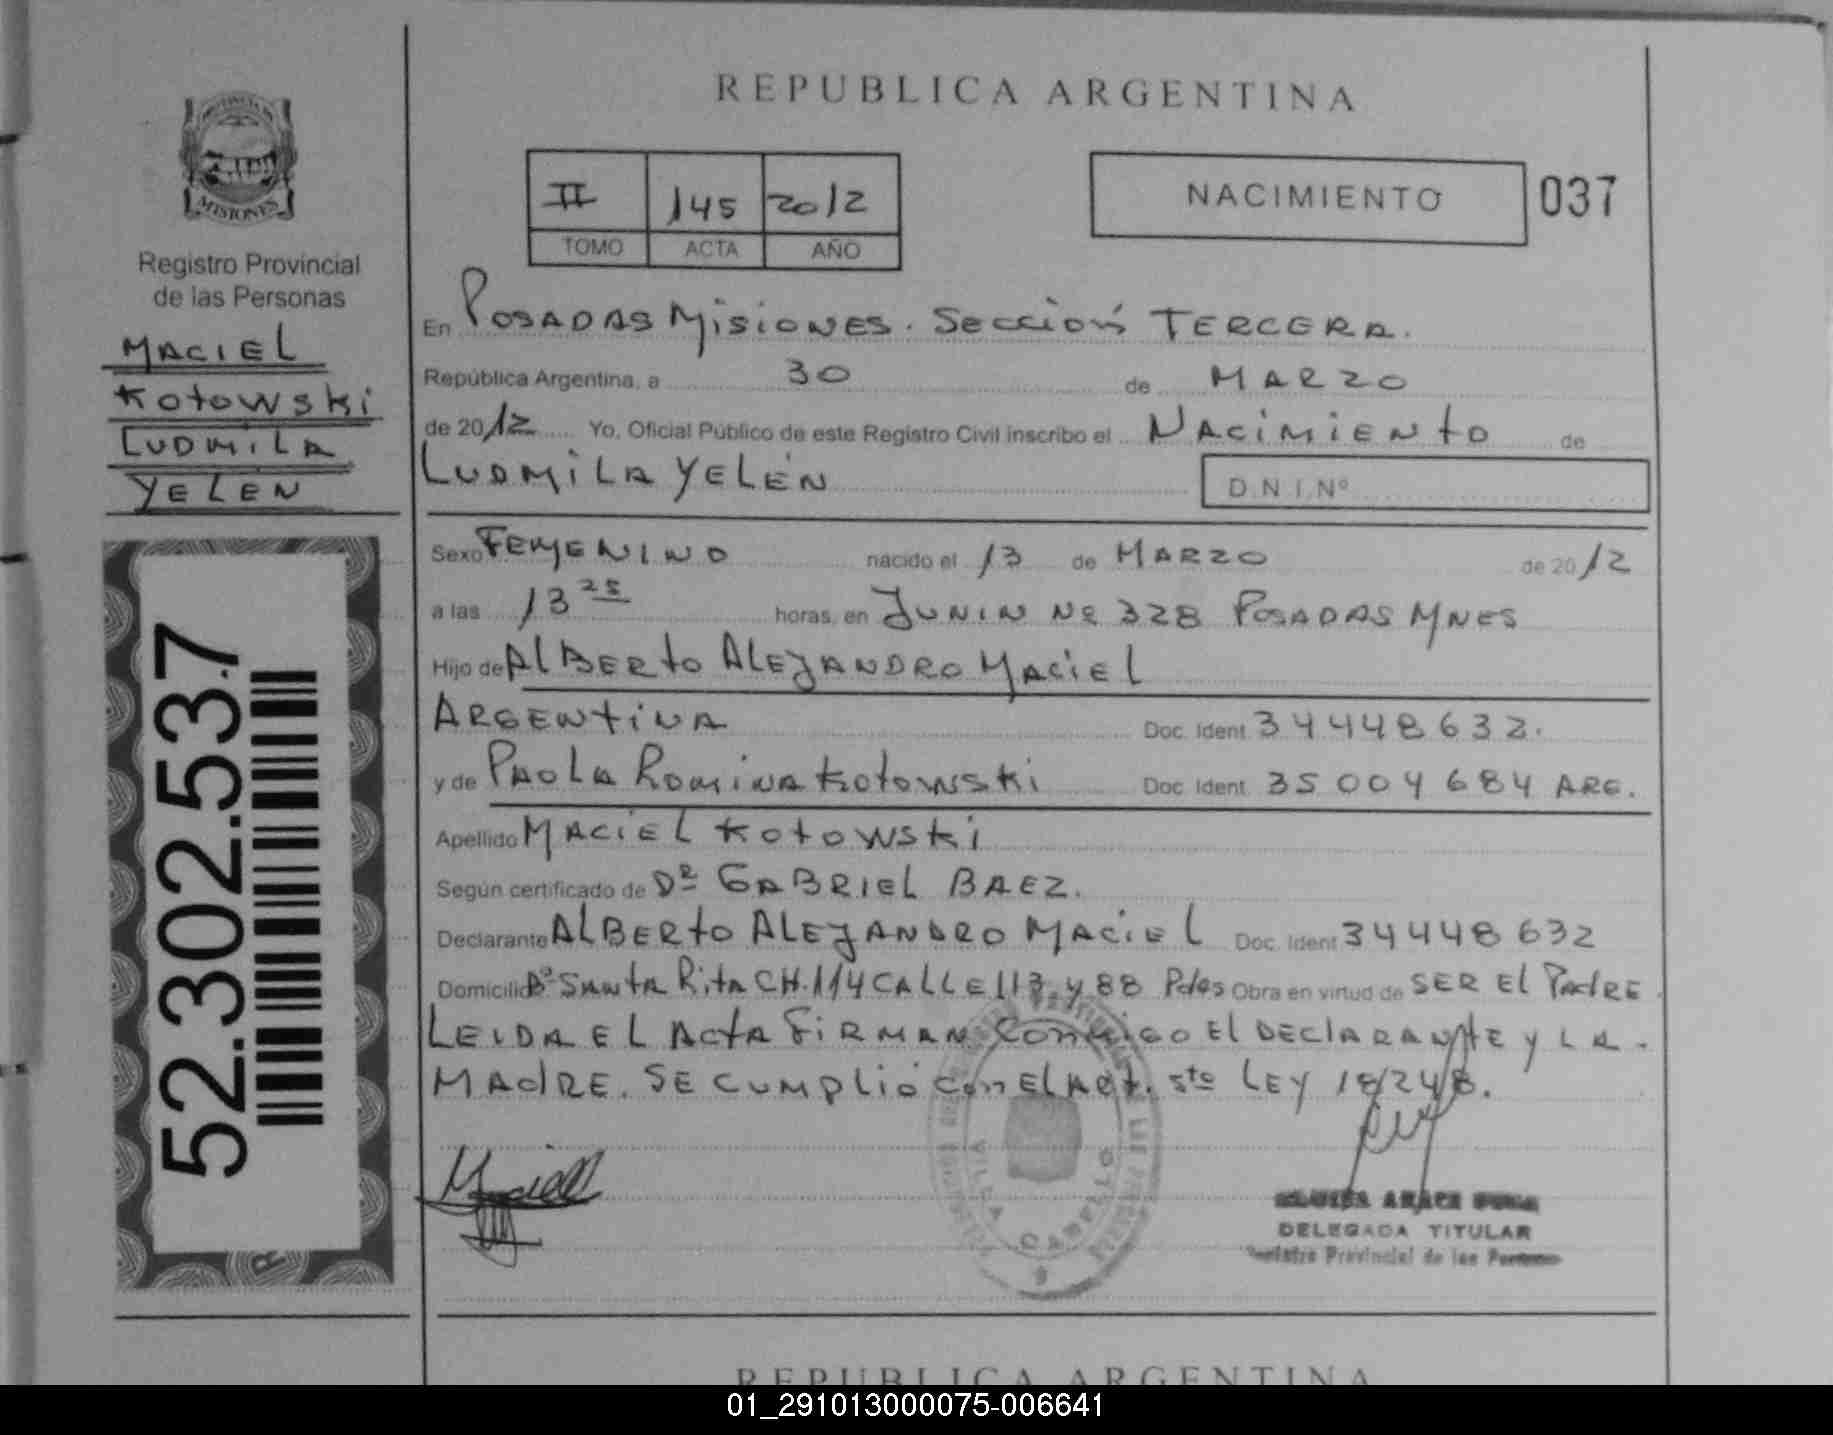 REPUBLICA ARGENTINA
MISIONES
Registro Provincial
de las Personas
MACIEL
KOTOWSKI
LUDMILA
YELEN
52.302.537
II 145 2012
TOMO ACTA AÑO
NACIMIENTO 037
En POSADAS MISIONES. SECCIÓN TERCERA.
República Argentina, a 30 de MARZO
de 2012 Yo, Oficial Público de este Registro Civil inscribo el NACIMIENTO de
LUDMILA YELÉN D.N.I.Nº
Sexo FEMENINO nacido el 13 de MARZO de 2012
a las 13 25 horas, en JUNIN Nº 328 POSADAS MNES
Hijo de ALBERTO ALEJANDRO MACIEL
ARGENTINA Doc. Ident. 34448632.
y de PAOLA ROMINA KOTOWSKI Doc. Ident. 35004684 ARG.
Apellido MACIEL KOTOWSKI
Según certificado de DR GABRIEL BAEZ.
Declarante ALBERTO ALEJANDRO MACIEL Doc. Ident. 34448632
Domicilio Bº SANTA RITA CH.114 CALLE 113 y 88 Pdas Obra en virtud de SER EL PADRE
LEIDA EL ACTA FIRMAN CONMIGO EL DECLARANTE Y LA
MADRE. SE CUMPLIÓ CON EL ART. 5to LEY 18248.
Maciel
VILLA CABELLO
DELEGADA TITULAR
Registro Provincial de las Personas
REPUBLICA ARGENTINA
01_291013000075-006641